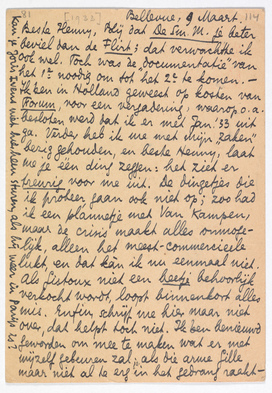 [1932]
114
Bellevue, 9 Maart.
Beste Henny, Blij dat De Sm. M. je beter
beviel dan de Flirt; dat verwachtte ik
ook wel. Toch was de "documentatie" van
het 1e noodig om tot het 2e te komen. —
Ik ben in Holland geweest op kosten van
Forum, voor een vergadering, waarop o.a.
besloten werd dat ik er met Jan. '33 uit
ga. Verder heb ik me met mijn "zaken"
bezig gehouden, en beste Henny, laat
me je één ding zeggen: het ziet er
treurig voor me uit. De dingetjes die
ik probeer gaan ook niet op; zoo had
ik een plannetje met Van Kampen,
maar de crisis maakt alles onmoge-
lijk, alleen het meest-commercieele
lukt, en dat kàn ik nu eenmaal niet.
Als Gistoux niet een beetje behoorlijk
verkocht wordt, loopt binnenkort alles
mis. Enfin, schrijf me hier maar niet
over, dat helpt toch niet. Ik ben benieuwd
geworden om mee te maken wat er met
mijzelf gebeuren zal; als die arme Gille
maar niet al te erg in het gedrang raakt —
Kan je Joris Ivens niet hierheen sturen, als hij weer in Parijs is?